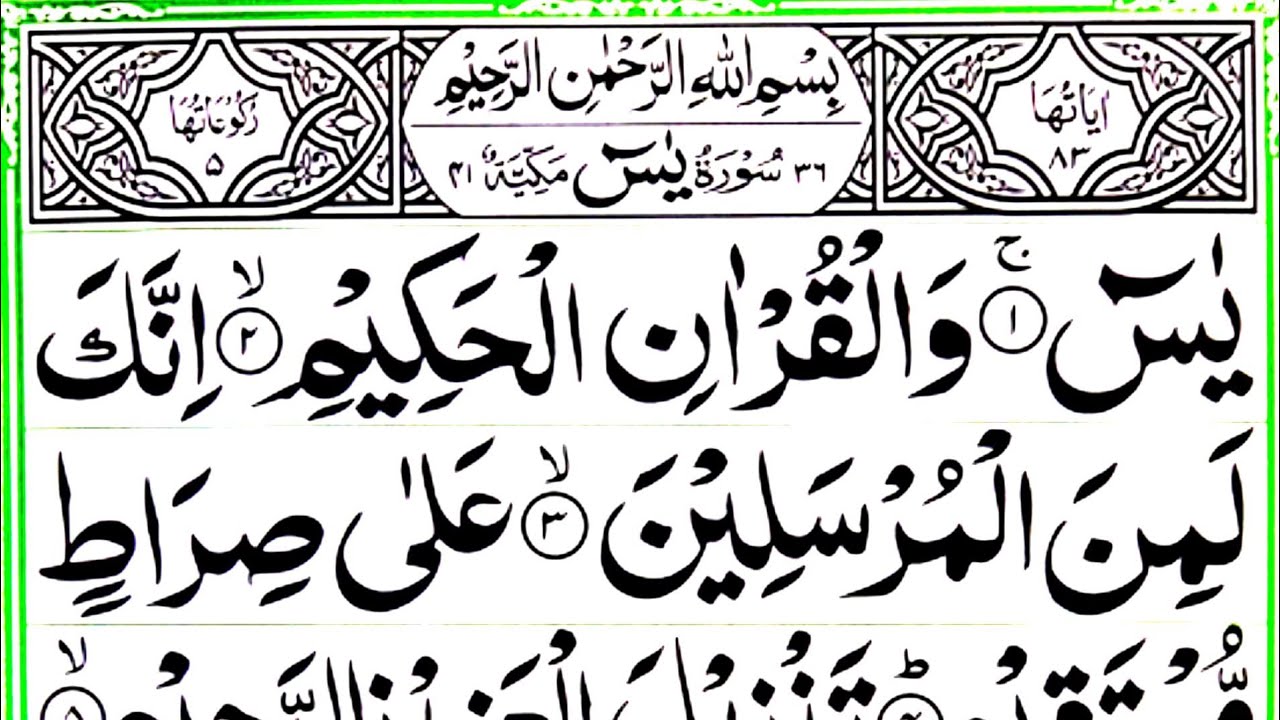 اٰيَاتُهَا ٨٣
بِسْمِ اللّٰهِ الرَّحْمٰنِ الرَّحِيْمِ
٣٦ سُوْرَةُ يٰسٓ مَكِّيَّةٌ ٤١
رُكُوْعَاتُهَا ٥
يٰسٓ ۚ ﴿١﴾ وَالْقُرْاٰنِ الْحَكِيْمِ ۙ ﴿٢﴾ اِنَّكَ
لَمِنَ الْمُرْسَلِيْنَ ۙ ﴿٣﴾ عَلٰى صِرَاطٍ
مُّسْتَقِيْمٍ ؕ ﴿٤﴾ تَنْزِيْلَ الْعَزِيْزِ الرَّحِيْمِ ۙ ﴿٥﴾